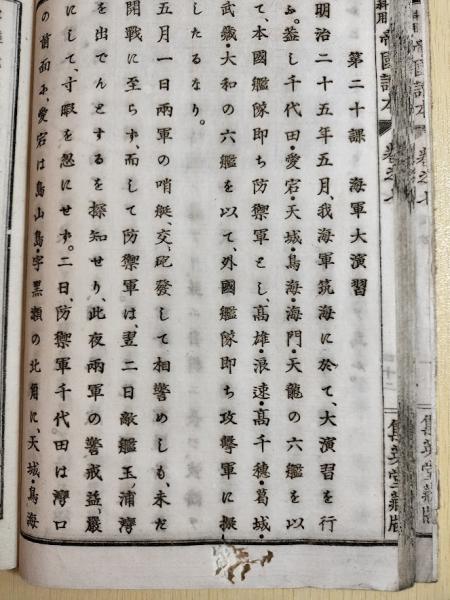 科用 帝國讀本 卷之七
集英堂藏版
第二十課　海軍大演習
明治二十五年五月、我海軍筑海に於て、大演習を行
ふ。葢し千代田・愛宕・天城・鳥海・海門・天龍の六艦を以
て、本國艦隊即ち防禦軍とし、高雄・浪速・高千穗・葛城・
武藏・大和の六艦を以て、外國艦隊即ち攻擊軍に擬
したるなり。
五月一日兩軍の哨艇、交、砲發して相警めしも、未だ
開戰に至らず、而して防禦軍は、翌二日敵艦玉ノ浦灣
を出でんとするを探知せり、此夜兩軍の警戒益、嚴
にして、寸暇を忽にせず。二日、防禦軍千代田は灣口
の前面に、愛宕は島山島・字黑瀨の北角に、天城・鳥海